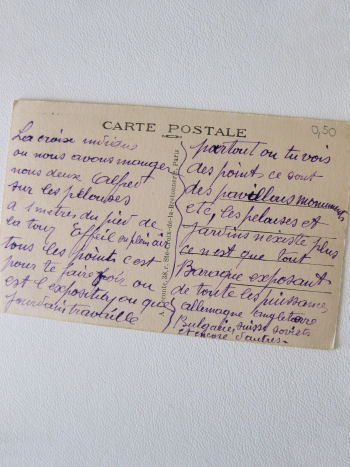 CARTE POSTALE
0,50
La croix indique
ou nous avons manger
nous deux Alfred
sur les pelouses
a 1 mètre du pied de
la tour Eiffel en plein air
tous les points c'est
pour te faire voir ou
est l'exposition ou que
Jourdain travaille
partout ou tu vois
des point ce sont
des pavillons monuments
etc, les pelouses et
Jardins n'existe plus
ce n'est que tout
Baraque exposant
de toute les puissances
allemagne angleterre
Bulgarie, suisse soviets
et encore d'autres -
Ste-Croix-de-la-Bretonnerie, Paris